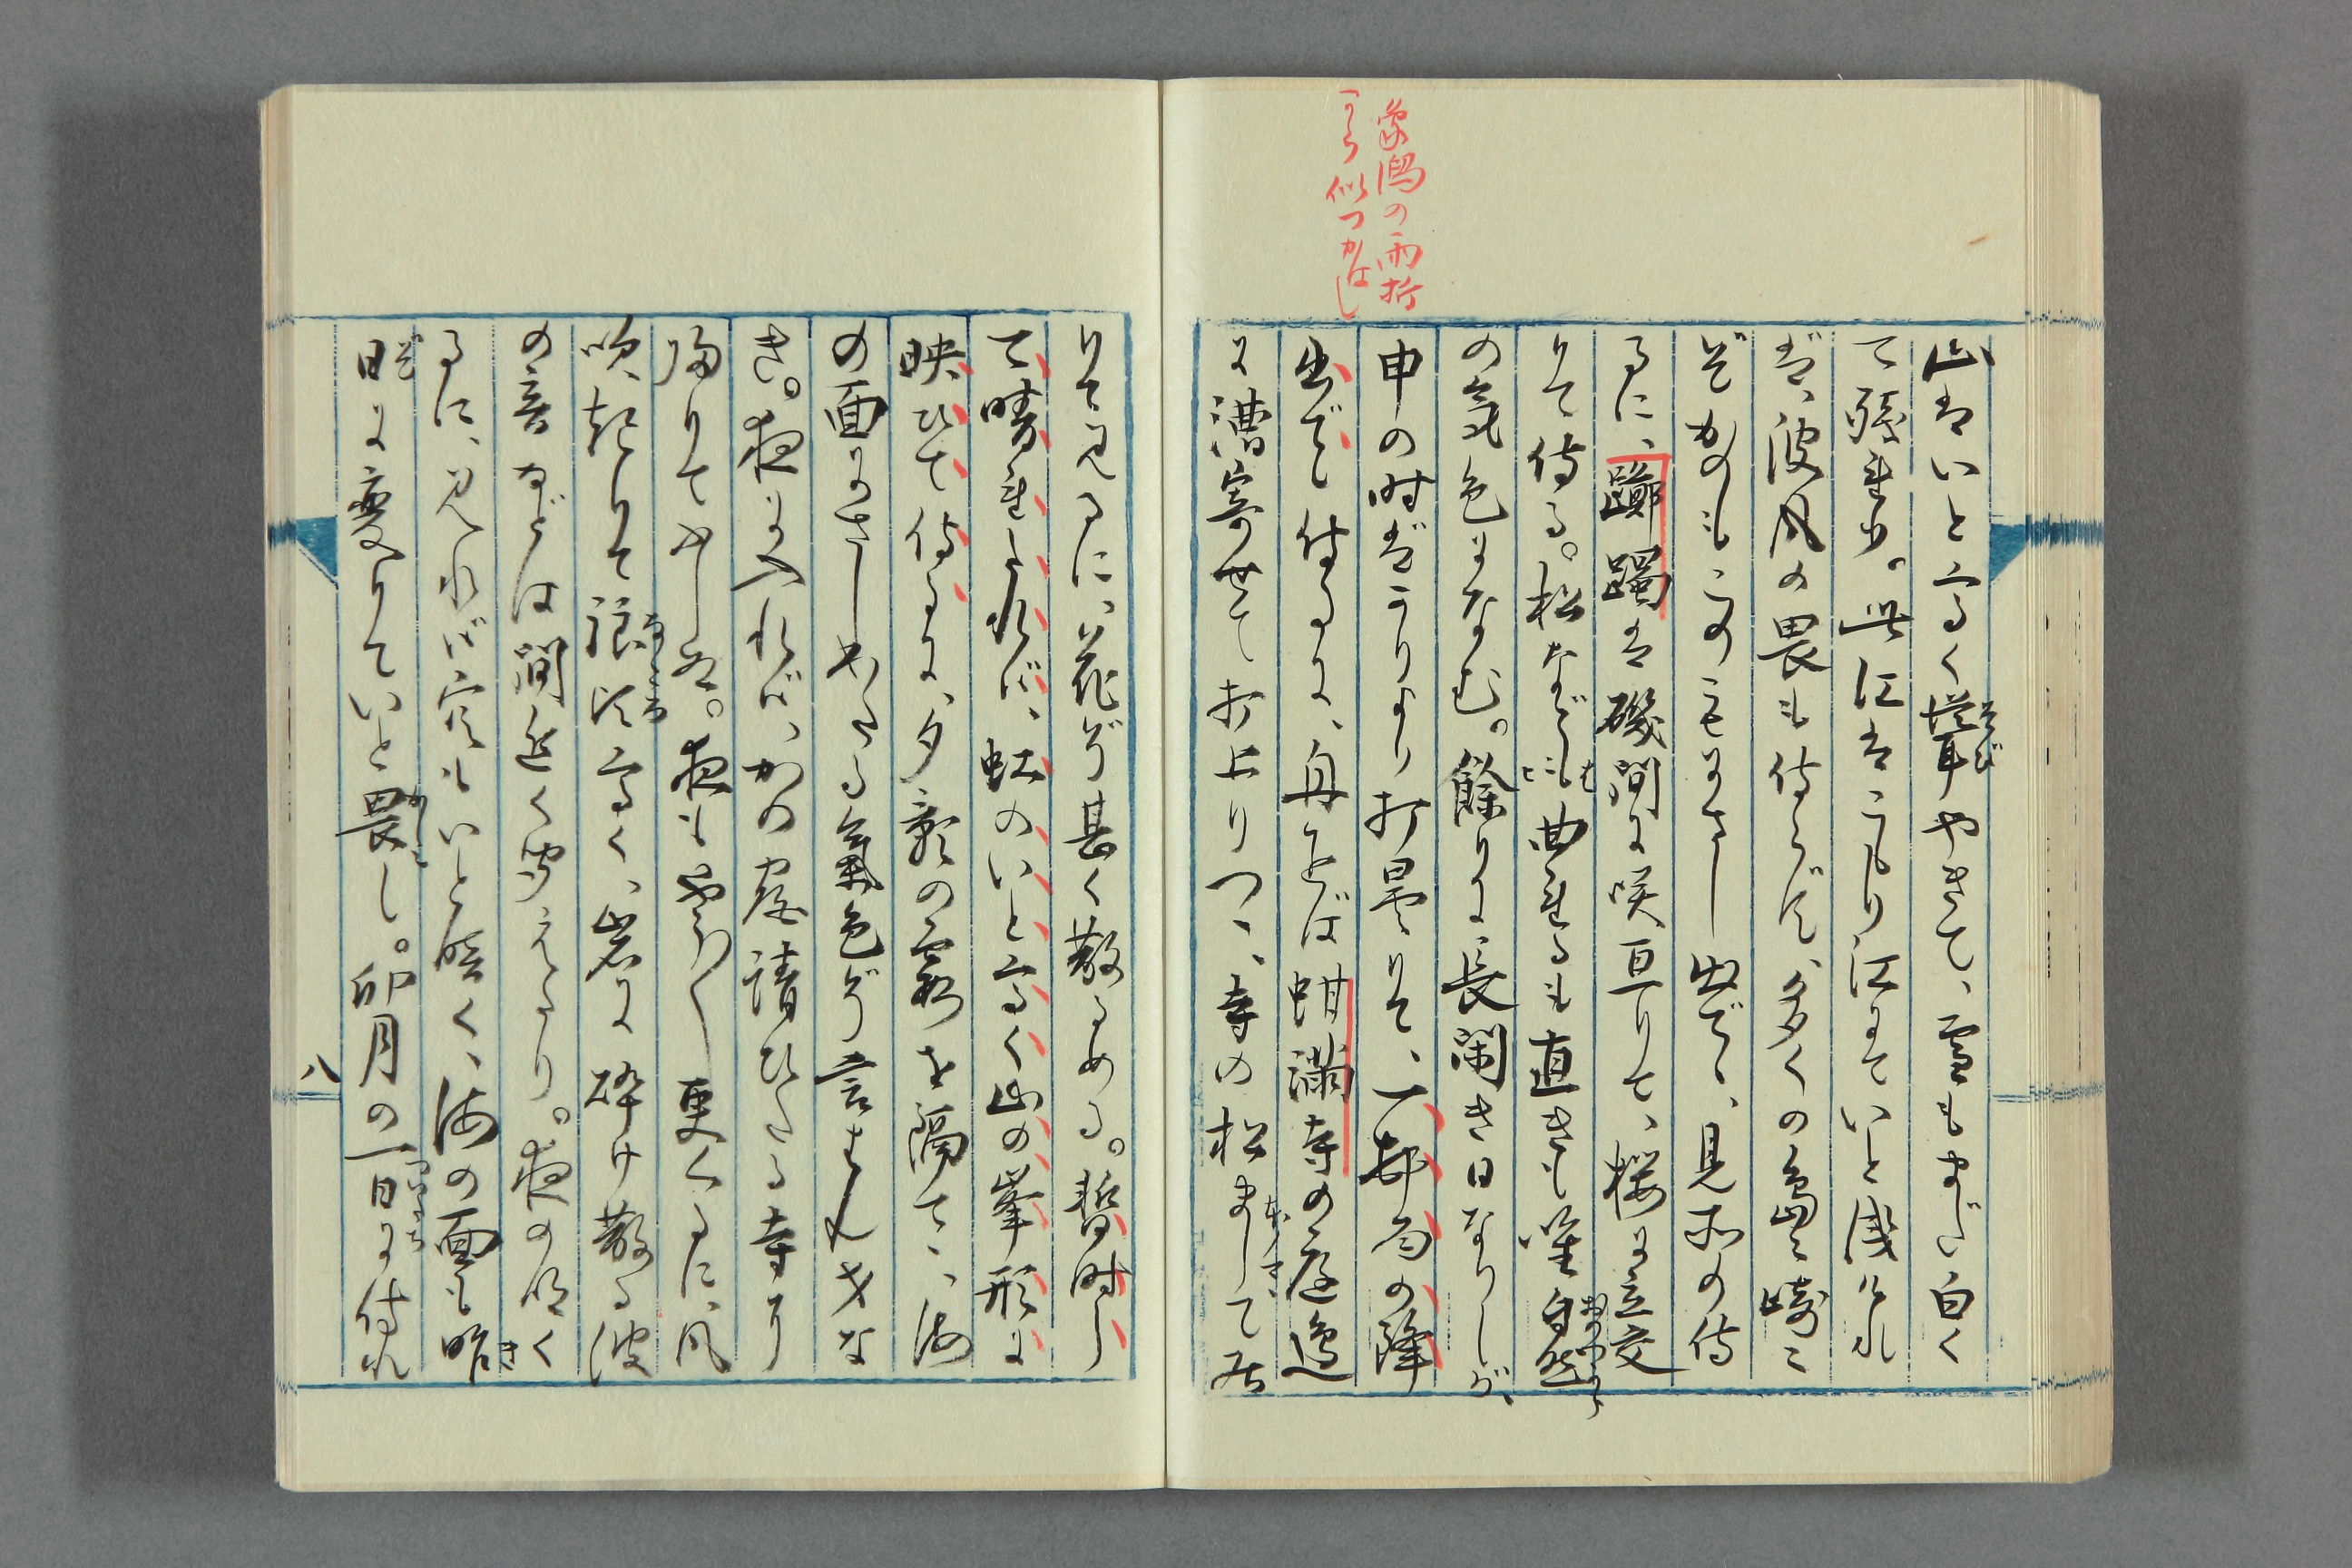 象潟の雨折
から似つかはし
山はいと高く聳やきて、雪もまだ白く
て残れり。此江はこもり江にていと浅けれ
ば、波風の畏も侍らず、多くの島々崎々
ぞかのもこのもにさし出でゝ、見所の侍
るに、躑躅は磯間に咲亘りて、桜に立交
りて侍る。松などにも曲れるも直きも唯自然
の気色になむ。餘りに長閑き日なりしが、
申の時ばかりより打曇りて、一郡雨の降
出でゝ侍るに、舟をば蚶満寺の庭邉
に漕寄せて打上りつゝ、寺の松ましてな
りて見るに、花ぞ甚く散るめる。暫時し
て晴れたれば、虹のいと高く山の峯形に
映ひて侍るに、夕彩の霧を隔て、海
の面にさしわたる氣色ぞ言はん方な
き。夜に入れば、かの宿請ひたる寺に
帰りてやしぬ。夜もやうやく更くるに、風
吹起りて浪いと高く、岩に砕け散る波
の音などは間近く聞えたり。夜の明く
るに、見れば空もいと暗く、海の面も昨
日に変りていと畏し。卯月の一日に侍れ
八